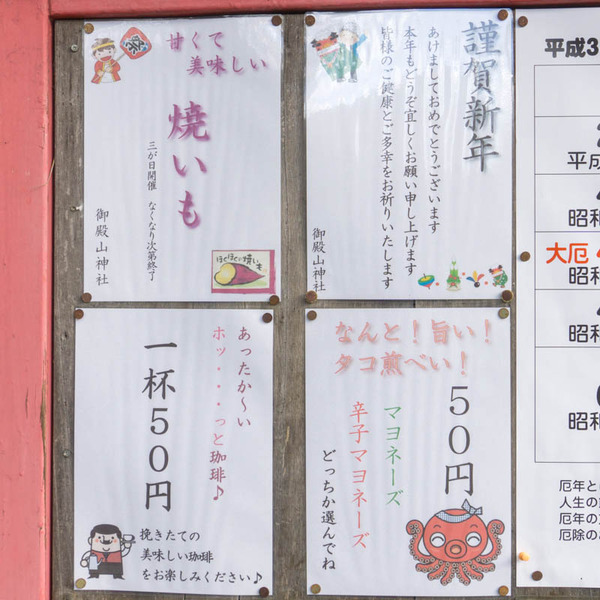 甘くて
美味しい
焼いも
三が日開催　なくなり次第終了
御殿山神社
ほくほくの焼いも
謹賀新年
あけましておめでとうございます
本年もどうぞ宜しくお願い申し上げます
皆様のご健康とご多幸をお祈りいたします
御殿山神社
あったか～い
ホッ・・・っと珈琲♪
一杯５０円
挽きたての
美味しい珈琲
をお楽しみください♪
なんと！旨い！
タコ煎べい！
５０円
マヨネーズ
辛子マヨネーズ
どっちか選んでね
平成3
平成
昭和
大厄
昭和
昭和
昭和
厄年と
人生の
厄年の
厄除の